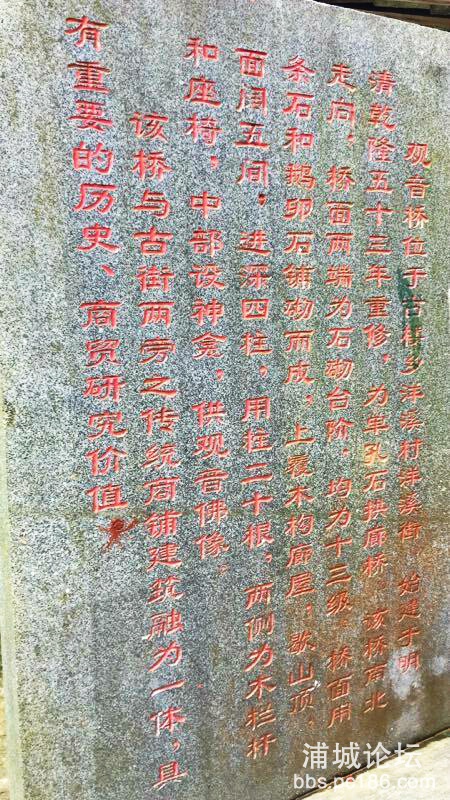 观音桥位于古楼乡洋溪村洋溪街，始建于明
清乾隆五十三年重修，为单孔石拱廊桥。该桥南北
走向，桥面两端为石砌台阶，均为十三级。桥面用
条石和鹅卵石铺砌而成，上覆木构廊屋，歇山顶，
面阔五间，进深四柱，用柱二十根，两侧为木栏杆
和座椅，中部设神龛，供观音佛像。
该桥与古街两旁之传统商铺建筑融为一体，具
有重要的历史、商贸研究价值
浦城论坛
bbs.pc186.com